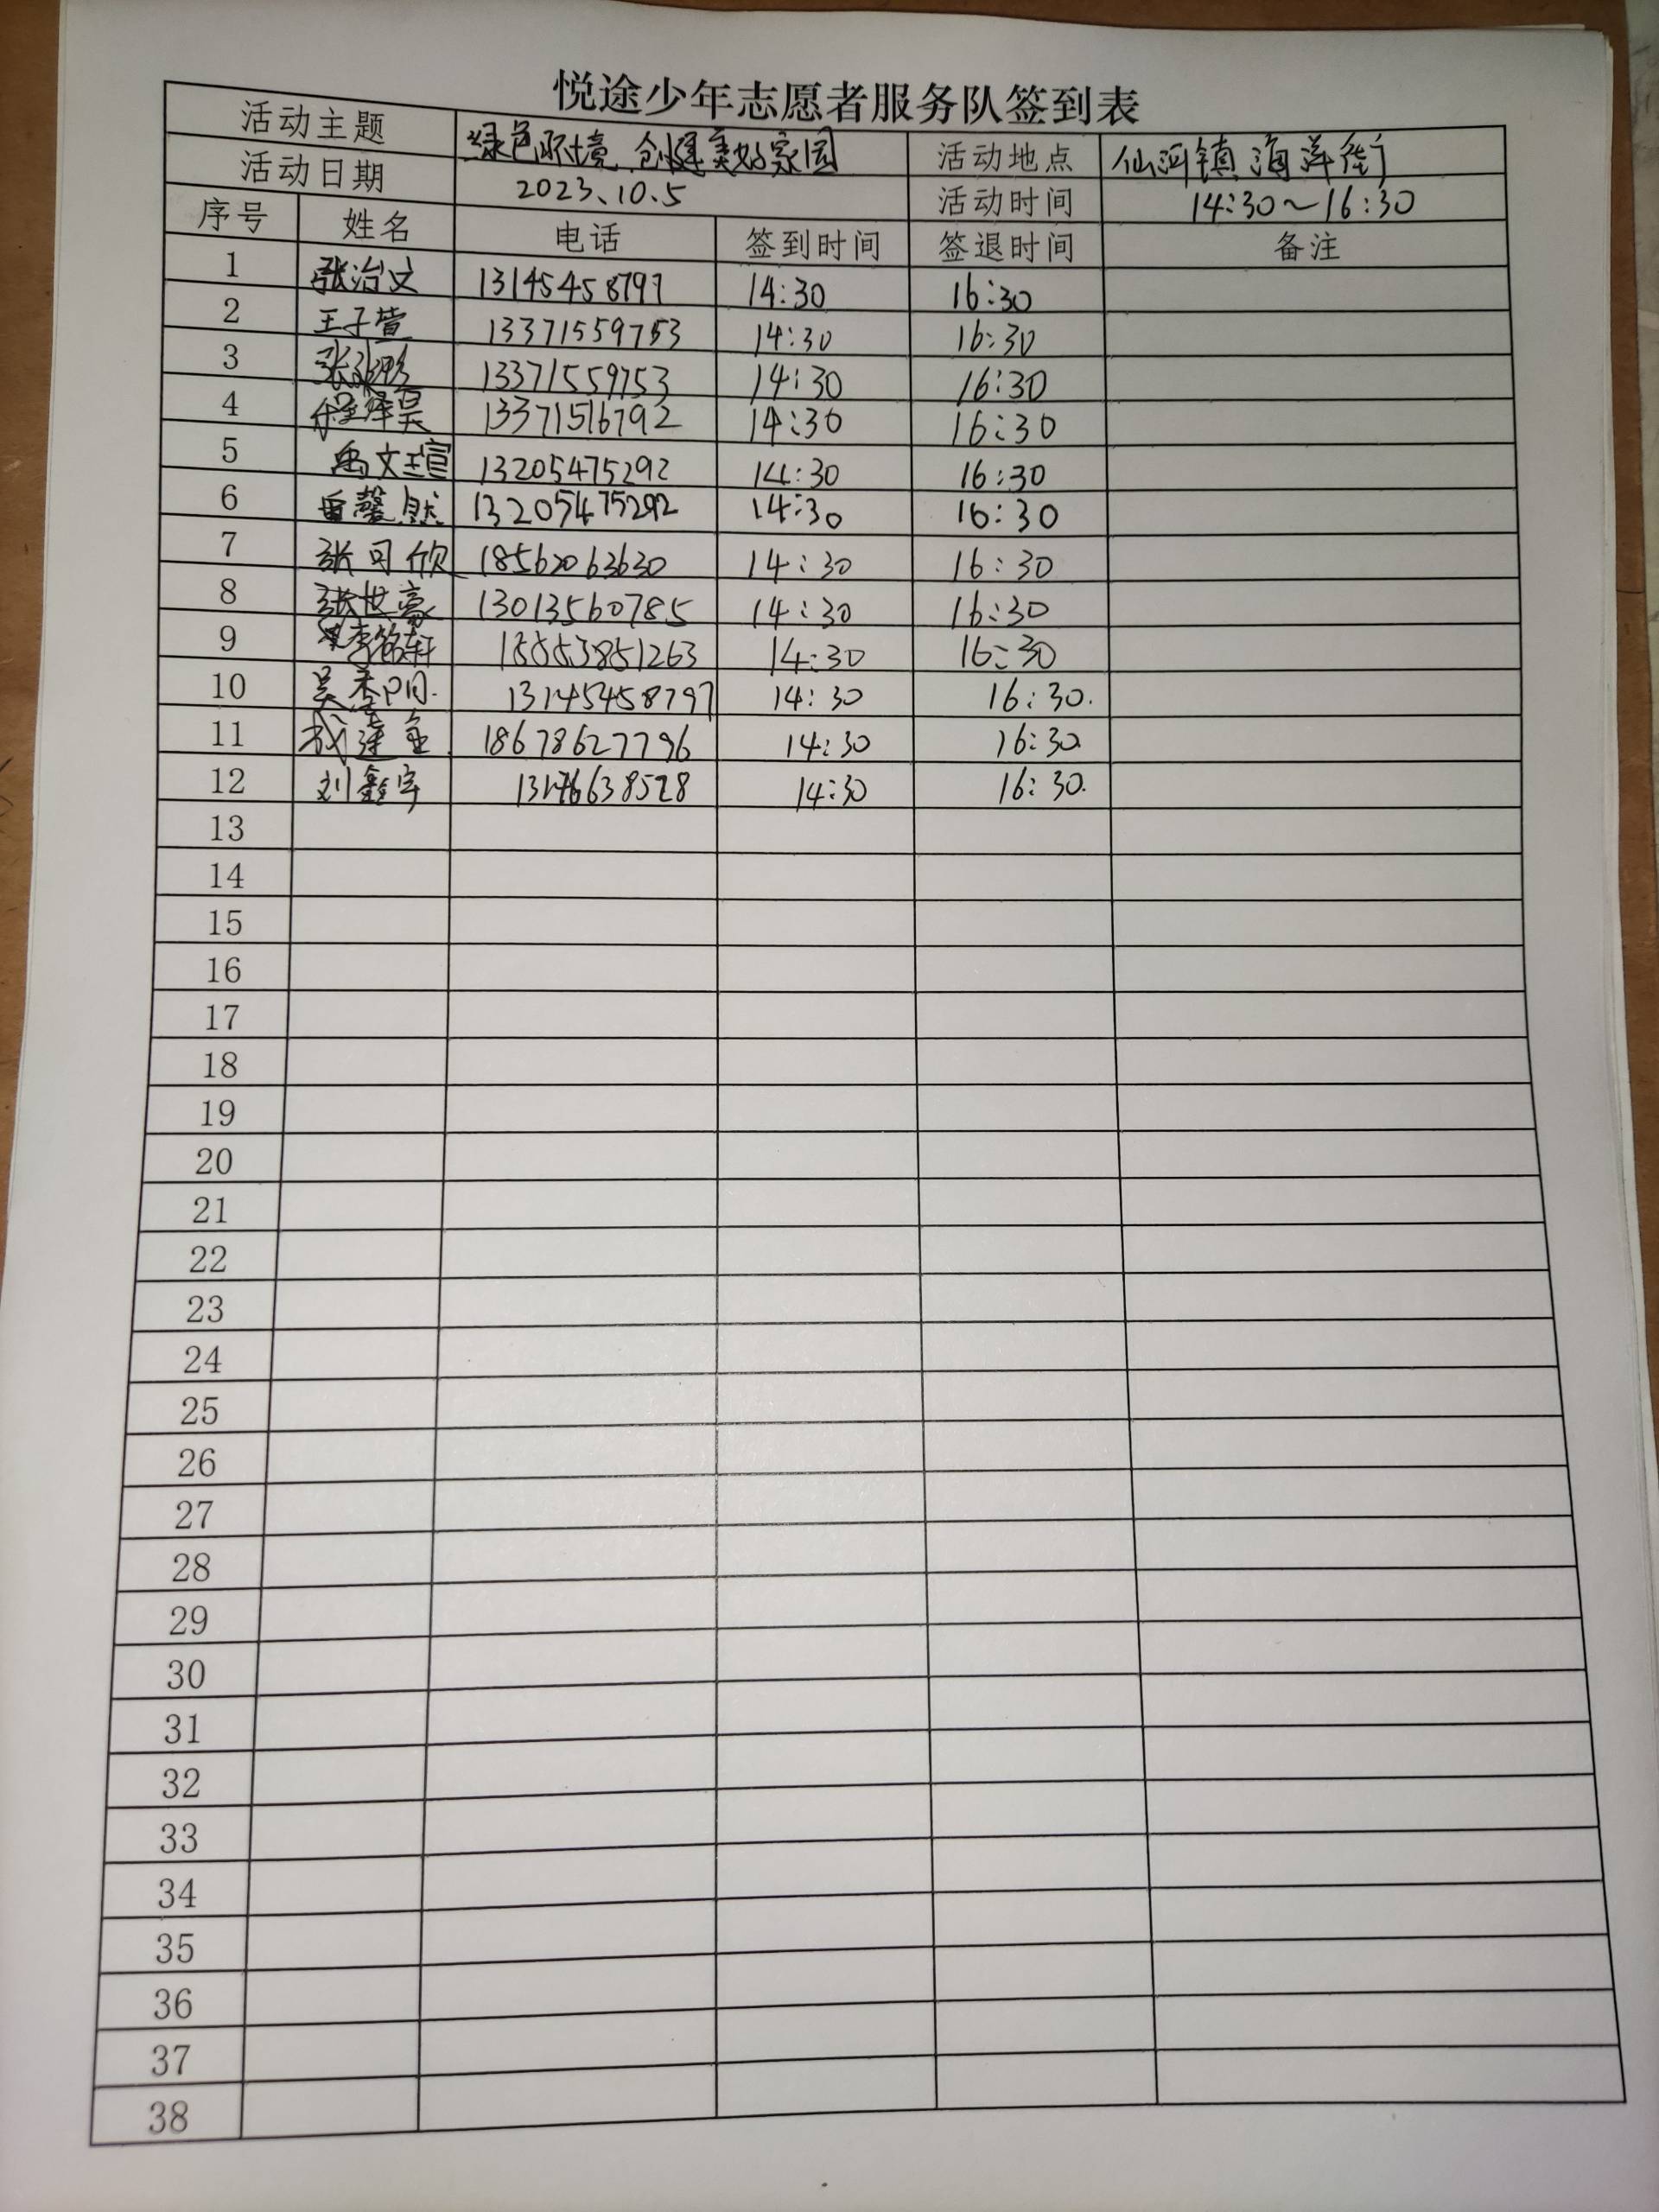 悦途少年志愿者服务队签到表
活动主题 绿色环境、创建美好家园 活动地点 仙河镇海洋街
活动日期 2023、10.5 活动时间 14:30～16:30
序号 姓名 电话 签到时间 签退时间 备注
1 张治文 13145458797 14:30 16:30
2 王子萱 13371559753 14:30 16:30
3 13371559753 14:30 16:30
4 13371516792 14:30 16:30
5 禹文瑄 13205475292 14:30 16:30
6 13205475292 14:30 16:30
7 张可欣 18562063630 14:30 16:30
8 张世豪 13013560785 14:30 16:30
9 李铭轩 15553851263 14:30 16:30
10 13145458797 14:30 16:30.
11 18678627796 14:30 16:30.
12 刘鑫宇 13176638528 14:30 16:30.
13
14
15
16
17
18
19
20
21
22
23
24
25
26
27
28
29
30
31
32
33
34
35
36
37
38